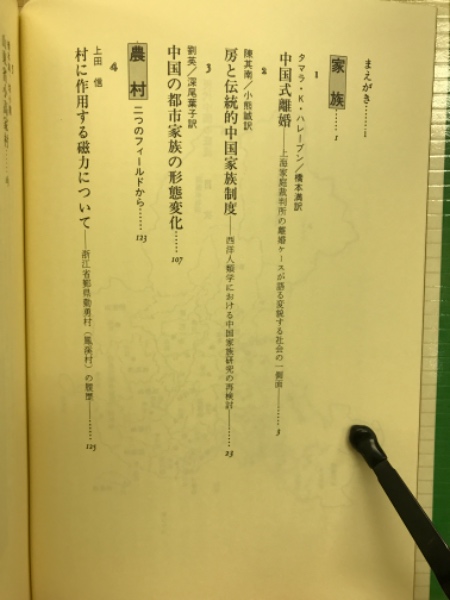 まえがき……i
家族……1
1
タマラ・K・ハレーブン／橋本満訳
中国式離婚――上海家庭裁判所の離婚ケースが語る変貌する社会の一側面――……3
2
陳其南／小熊誠訳
房と伝統的中国家族制度――西洋人類学における中国家族研究の再検討――……23
3
劉英／深尾葉子訳
中国の都市家族の形態変化……107
農村 二つのフィールドから……123
4
上田 信
村に作用する磁力について――浙江省鄞県勤勇村（鳳渓村）の履歴――……125